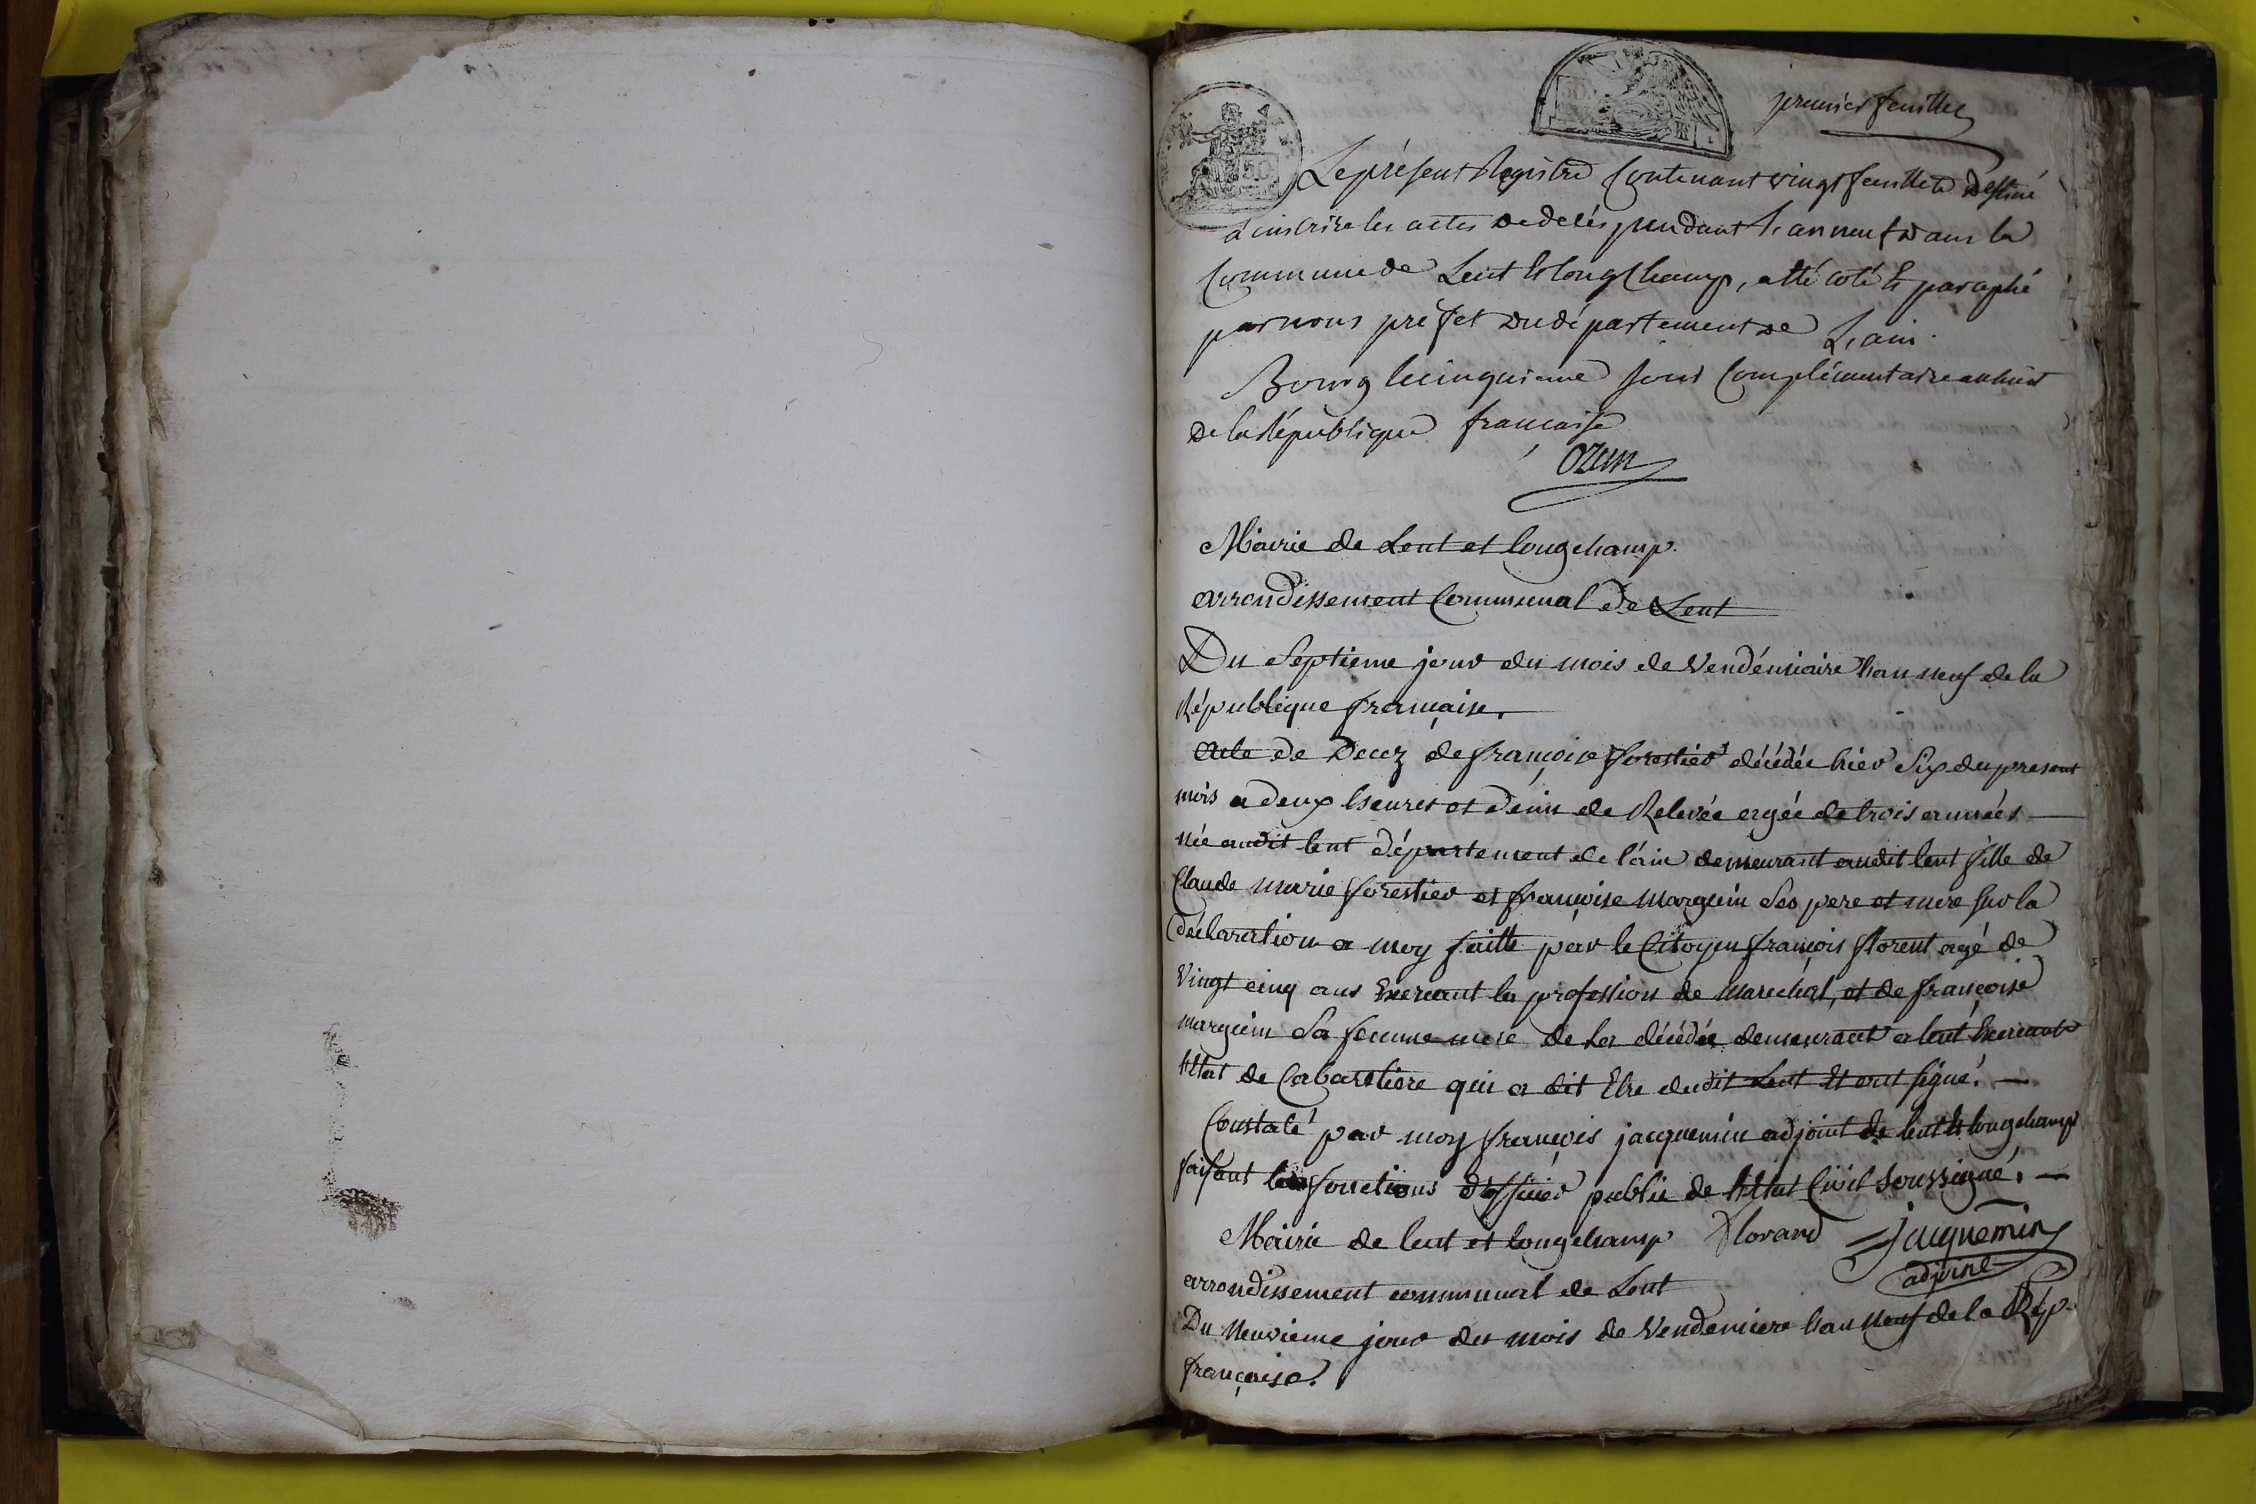 premier feuillet
Le présent Registre Contenant vingt feuillets Destiné
a inscrire les actes de décès pendant l'an neuf dans la
Commune de Lent et longchamp, a été coté et paraphé
par nous préfet du département de L'ain.
Bourg le cinquieme jour Complémentaire an huit
de la République française
Ozun
Mairie de Lent et longchamp.
arrondissement Communal de Lent
Du Septieme jour du mois de Vendémiaire l'an neuf de la
République française.
Acte de Decez de françoise forestier décédée hier Six du present
mois a deux heures et demi de Relevée agée de trois années
née audit lent département de l'ain demeurant audit lent fille de
Claude marie forestier et françoise marguin Ses pere et mere sur la
déclaration a moy faitte par le Citoyen françois florent agé de
vingt cinq ans Exercant la profession de marechal, et de françoise
marguin Sa femme mere de la décédée demeurant a lent Exercant
l'Etat de Cabaretiere qui a dit Etre dudit Lent Et ont signé.
Constaté par moy françois jacquemin adjoint de lent et longchamp
faisant les fonctions d'officier public de l'Etat Civil soussigné.
Mairie de lent et longchamp florand jacquemin
adjoint
arrondissement communal de Lent
Du Neuvieme jour du mois de Vendemiere l'an Neuf de la Rép.
françoise.
50